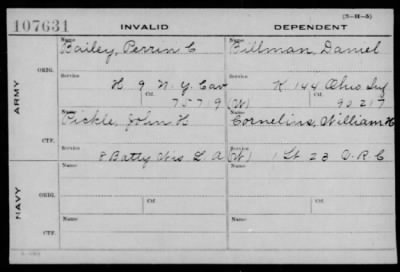 107631 INVALID DEPENDENT (3-H-5)
Name Name
Bailey, Perrin C Billman, Daniel
ORIG. Service Service
H 9 N.Y. Cav K 144 Ohio Inf
ARMY Ctf. Ctf.
7579 (W) 90217
Name Name
Pickle, John H Cornelius, William H
CTF. Service Service
8 Batty Wis L A (W) 1 Lt 23 O.R.C
Name Name
ORIG.
Service Ctf. Service Ctf.
NAVY
Name Name
CTF.
Service Service